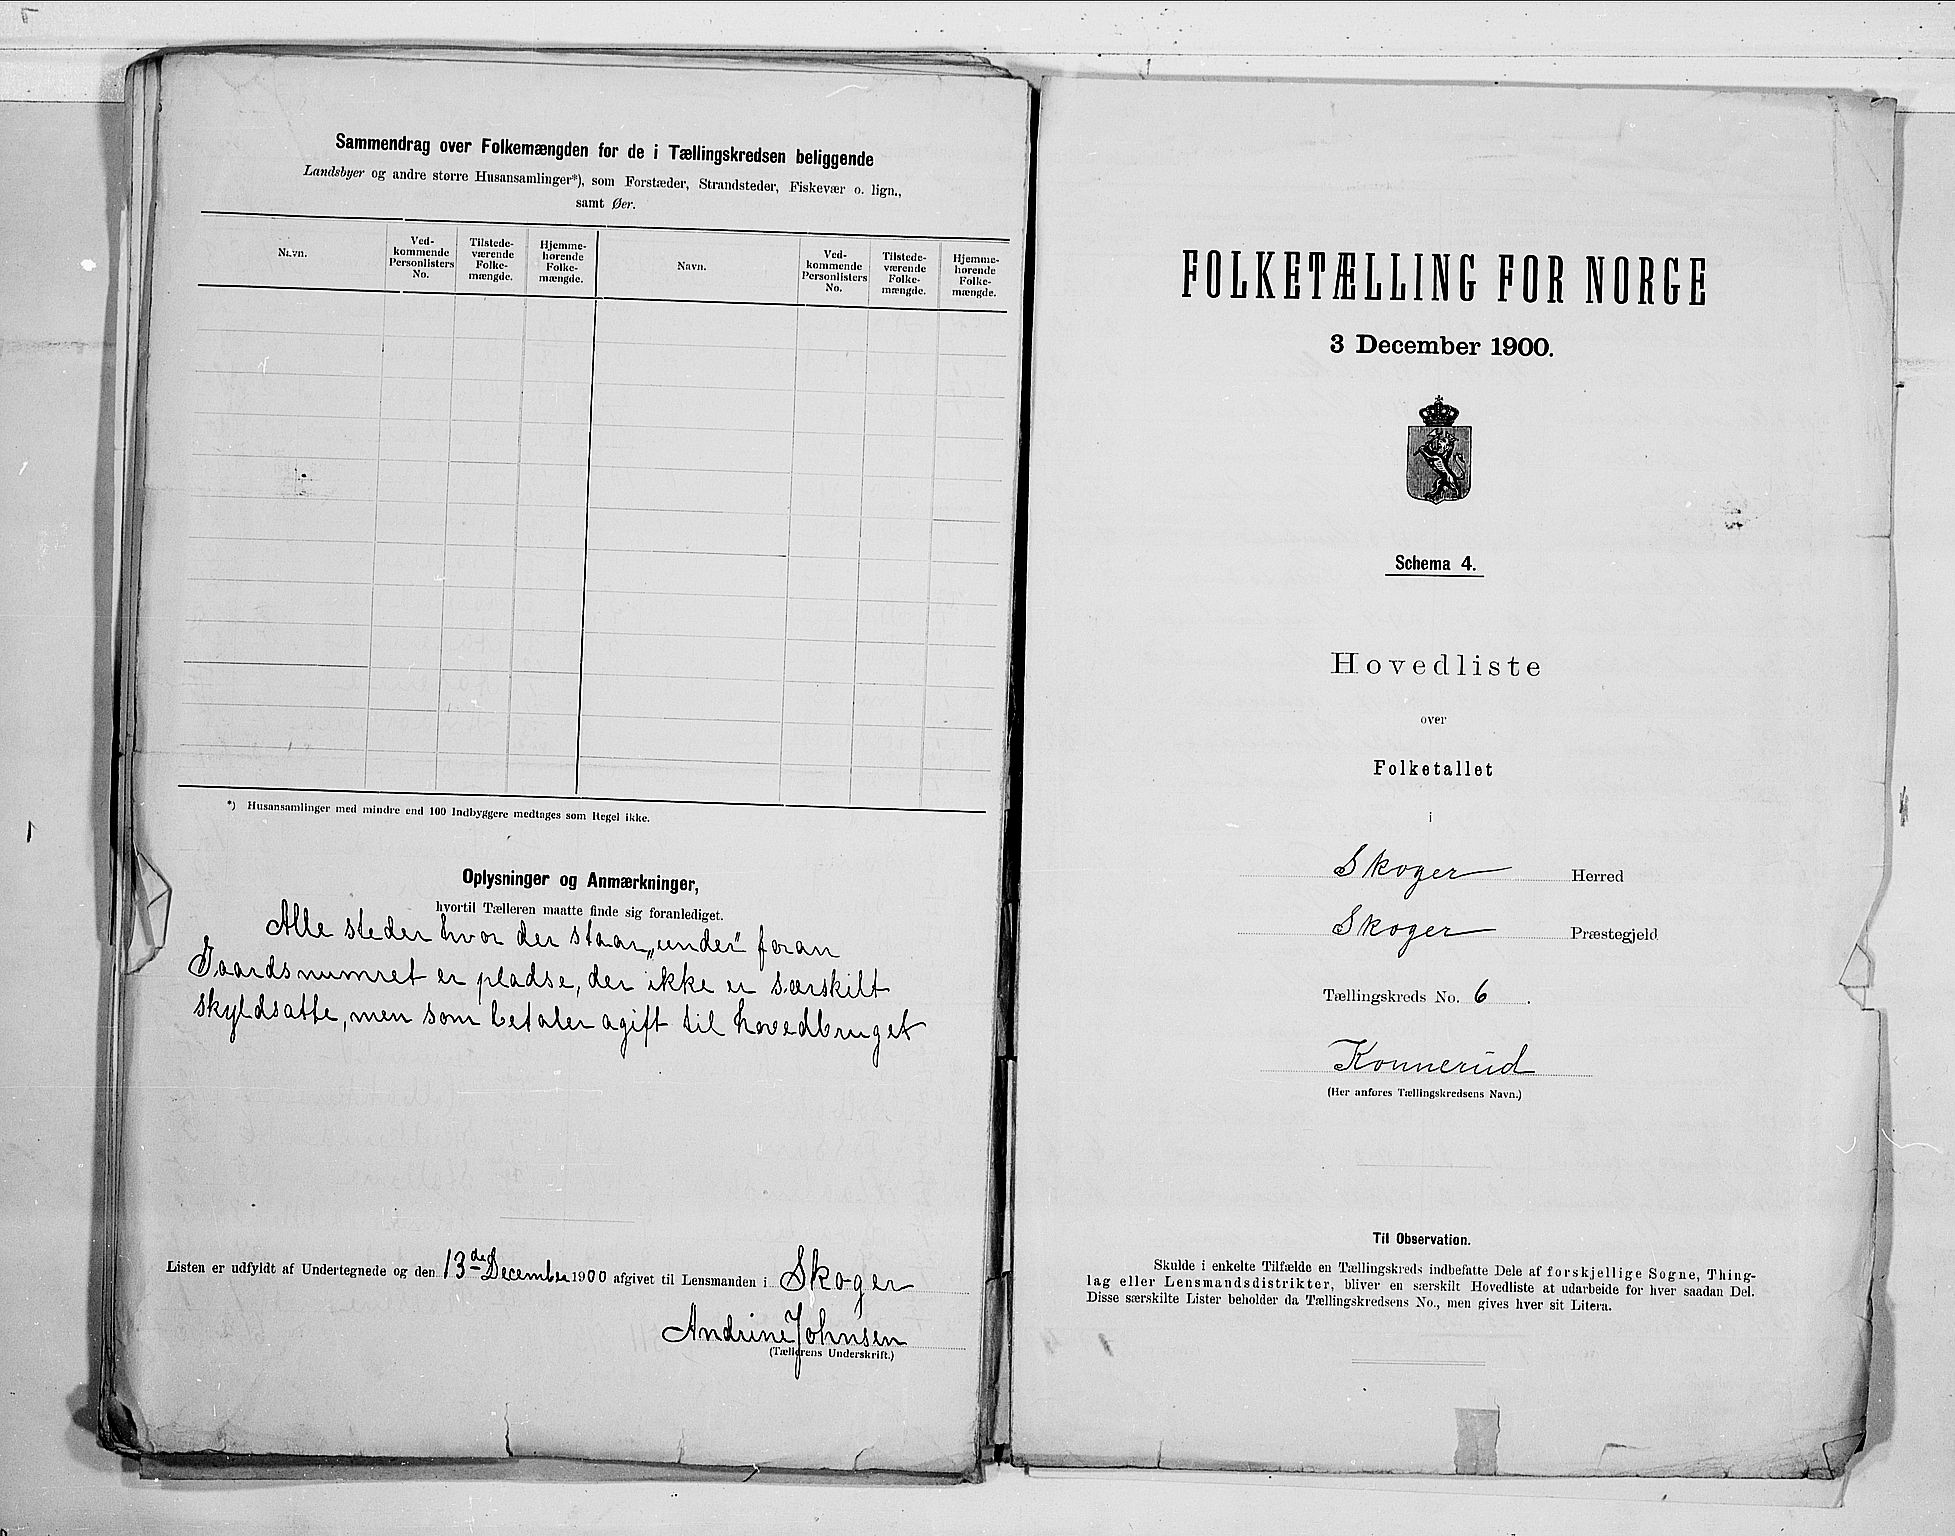 Sammendrag over Folkemængden for de i Tællingskredsen beliggende
Landsbyer og andre større Husansamlinger*), som Forstæder, Strandsteder, Fiskevær o. lign.,
samt Øer.
Navn.
Ved-
kommende
Personlisters
No.
Tilstede-
værende
Folke-
mængde.
Hjemme-
hørende
Folke-
mængde.
Navn.
Ved-
kommende
Personlisters
No.
Tilstede-
værende
Folke-
mængde.
Hjemme-
hørende
Folke-
mængde.
*) Husansamlinger med mindre end 100 Indbyggere medtages som Regel ikke.
Oplysninger og Anmærkninger,
hvortil Tælleren maatte finde sig foranlediget.
Alle steder hvor der staar „under" foran
Gaardsnumret er pladse, der ikke er særskilt
skyldsatte, men som betaler agift til hovedbruget
Listen er udfyldt af Undertegnede og den 13de December 1900 afgivet til Lensmanden i Skoger
Andrine Johnsen
(Tællerens Underskrift.)
FOLKETÆLLING FOR NORGE
3 December 1900.
Schema 4.
Hovedliste
over
Folketallet
i
Skoger Herred
Skoger Præstegjeld
Tællingskreds No. 6.
Konnerud
(Her anføres Tællingskredsens Navn.)
Til Observation.
Skulde i enkelte Tilfælde en Tællingskreds indbefatte Dele af forskjellige Sogne, Thing-
lag eller Lensmandsdistrikter, bliver en særskilt Hovedliste at udarbeide for hver saadan Del.
Disse særskilte Lister beholder da Tællingskredsens No., men gives hver sit Litera.